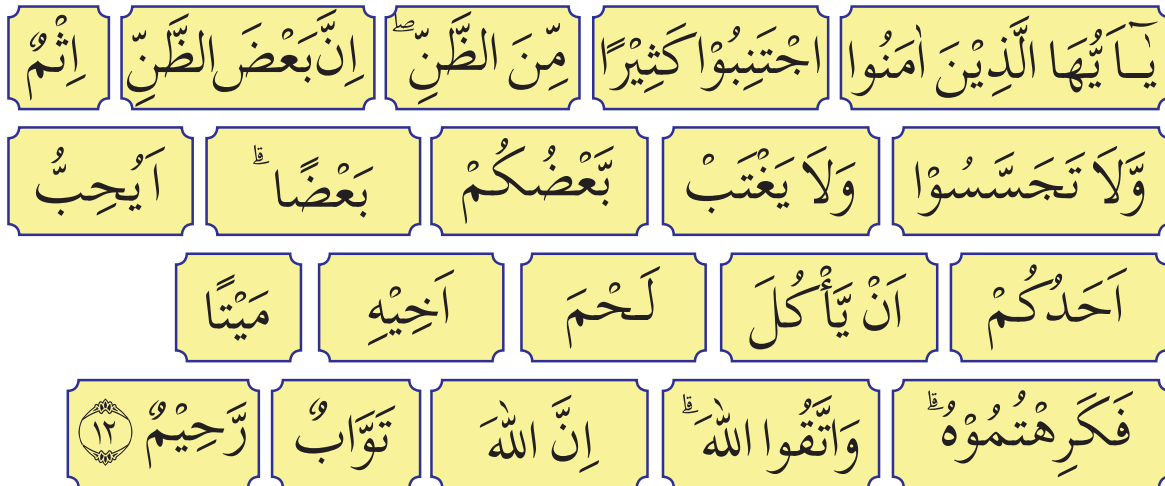 يٰٓاَ يُّهَا الَّذِيْنَ اٰمَنُوا اجْتَنِبُوْا كَثِيْرًا مِّنَ الظَّنِّ ۖ اِنَّ بَعْضَ الظَّنِّ اِثْمٌ
وَّلَا تَجَسَّسُوْا وَلَا يَغْتَبْ بَّعْضُكُمْ بَعْضًا ۗ اَيُحِبُّ
اَحَدُكُمْ اَنْ يَّأْكُلَ لَـحْمَ اَخِيْهِ مَيْتًا
فَكَرِهْتُمُوْهُ ۗ وَاتَّقُوا اللّٰهَ ۗ اِنَّ اللّٰهَ تَوَّابٌ رَّحِيْمٌ ١٢